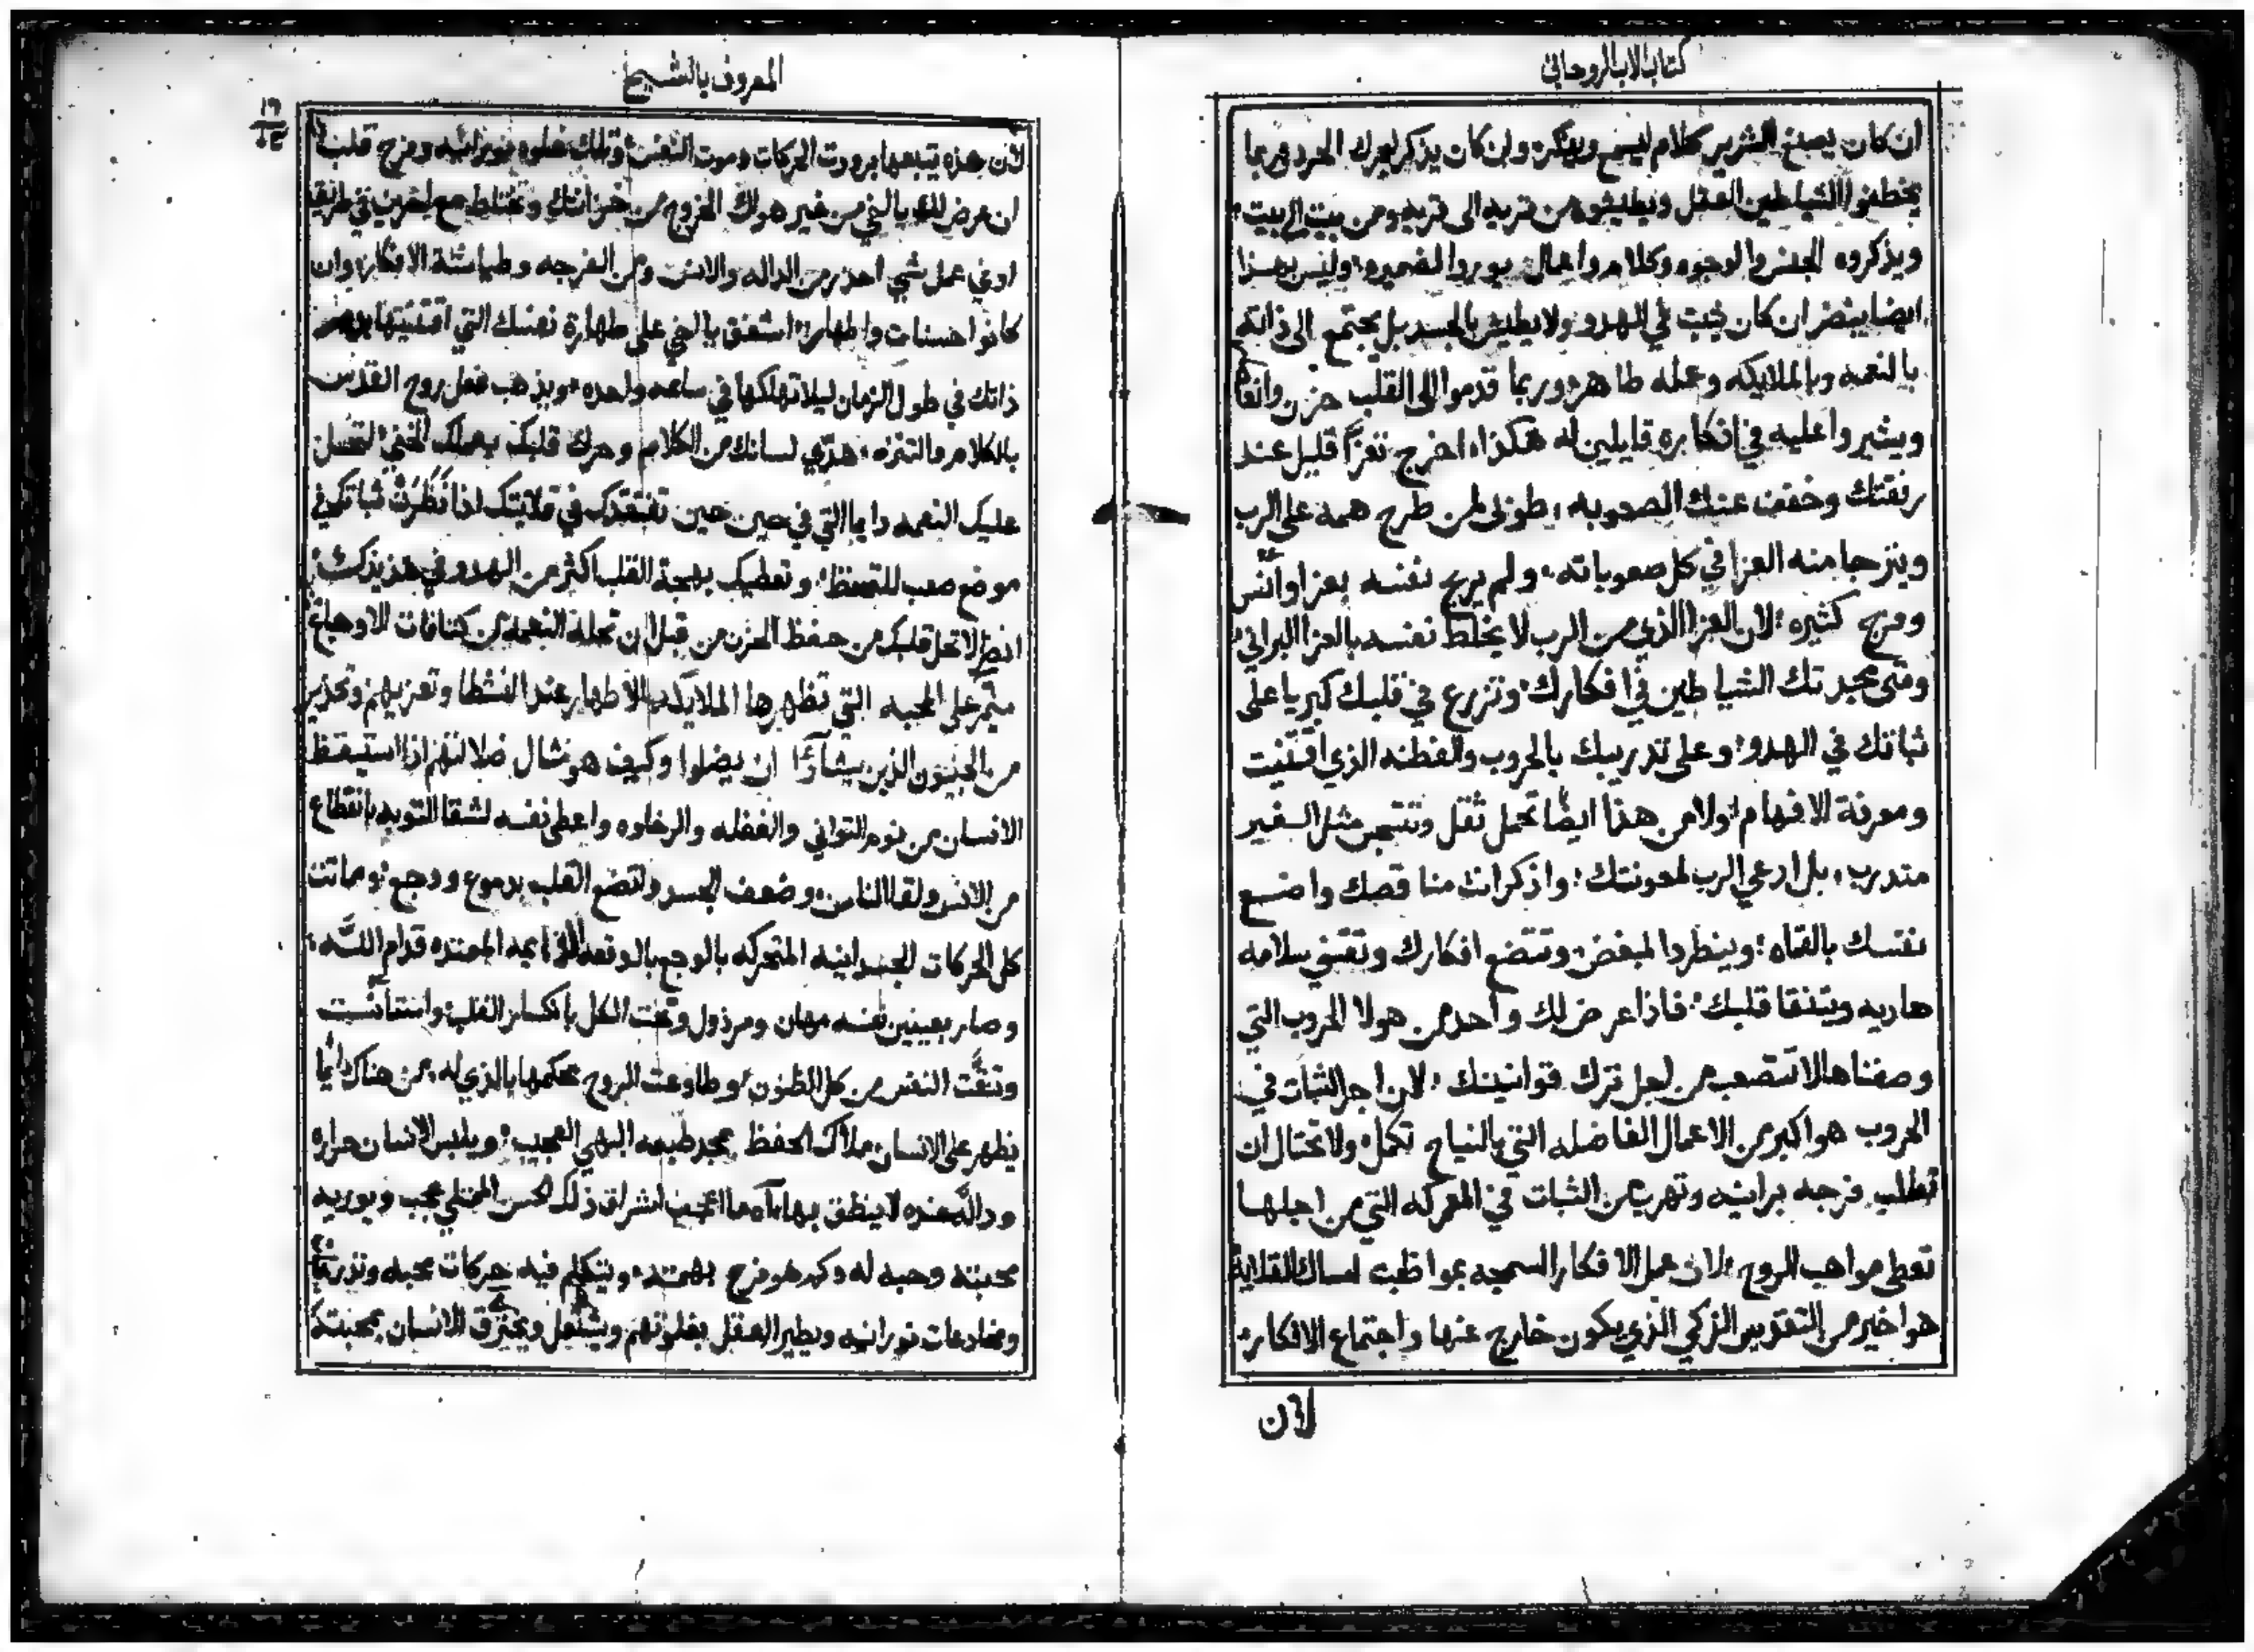 كتاب الاب الروحاني
ان كان يصنع الشرير كلام ليسمع ويفكر وان كان يذكر ليدرك الحرد وربما
يخطفوا الشياطين العقل ويطيشوه من قريه الى قريه ومن بيت الى بيت
ويذكروه الجنس والوجوه وكلام واعمال يوروا لضميره وليس بهذا
ايضا يضر ان كان يثبت في الهدو ولا يطيش بالجسد بل يجتمع الى ذاته
بالنعمه وبالملايكه وعمله طاهر وربما قدموا الى القلب حزن وانغام
ويشيروا عليه في افكاره قايلين له هكذا اخرج تعزا قليل عند
رفقتك وخفف عنك الصعوبه طوبى لمن طرح همه على الرب
ويترجا منه العزا في كل صعوباته ولم يريح نفسه بعزا وانس
وفرح كثيره لان العزا الذي من الرب لا يخلط نفسه بالعزا البراني
ومتى مجدتك الشياطين في افكارك وتزرع في قلبك كبريا على
ثباتك في الهدو وعلى تدريبك بالحروب والفطنه الذي اقتنيت
ومعرفة الافهام ولا من هذا ايضا تحمل ثقل وتنسجس مثل الغير
متدرب بل ادعي الرب لمعونتك واذكر انت مناقصك واضع
نفسك بالقاه وينطرد المبغض وتتضع افكارك وتقتني سلامه
هاديه ويتنقا قلبك فاذا عرض لك واحد من هولا الحروب التي
وصفناها لا تتصعب من اجل ترك قوانينك لان اجر الثبات في
الحروب هو اكبر من الاعمال الفاضله التي بالنياح تكمل ولا تحتال ان
تطلب فرجه برانيه وتهرب من الثبات في المعركه التي من اجلها
تعطى مواهب الروح لان عمل الافكار السمجه بمواظبت امساك القلايه
هو اخير من التقويم الزكي الذي يكون خارج عنها واجتماع الافكار
لان
المعروف بالشيخ
لان هذه تتبعها برودت الحركات وموت النفس وتلك خلوه نورانيه وفرح قلب
ان عرض لك يا اخي من غير هواك الخروج من خزانتك وتختلط مع اخرين في طريق
او في عمل شي احذر من الداله والانس ومن الفرجه وطياشة الافكار وان
كانوا حسنات واطهار اشفق يا اخي على طهارة نفسك التي اقتنيتها
ذاتك في طول الزمان ليلا تهلكها في ساعه واحده ويذهب فعل روح القدس
بالكلام والتنزه هدي لسانك من الكلام وحرك قلبك بعملك الخفي لتحل
عليك النعمه دايما التي في حين حين تفتقدك في قلايتك اذا نظرت ثباتك في
موضع صعب للتحفظ وتعطيك بهجة القلب اكثر من الهدو في هذيذك
انظر لا تحل قلبك من حفظ الحزن من قبل ان تحله النعمه من كتافات الاوجاع
من الجنيون الذين يشاؤا ان يضلوا وكيف هو مثال ضلالتهم اذا استيقظ
الانسان من نوم التواني والغفله والرخاوه واعطى نفسه لشقا التوبه بانقطاع
من الانس ولقا الناس وضعف الجسد واتضع القلب بدموع ووجع وماتت
كل الحركات الجسدانيه المتحركه بالوجع بالوقعه الدايمه الممتده قدام الله
وصار بعينين نفسه مهان ومرذول وتحت الكل بانكسار القلب واستأنست
وتنقت النفس من كل الظنون وطاوعت الروح محكمها بالذي له من هناك دايما
يظهر على الانسان ملاك الحفظ بمجد طبعه البهي العجيب ويلبس الانسان حراره
لا ينطق بها اه ما اعجب اشراق ذلك الحسن الممتلي عجب ويوريه
محبته وحبه له وكم هو فرح بهمته ويتكلم فيه حركات محبه
نورانيه ويطير العقل ويشتعل ويحترق الانسان بمحبتك